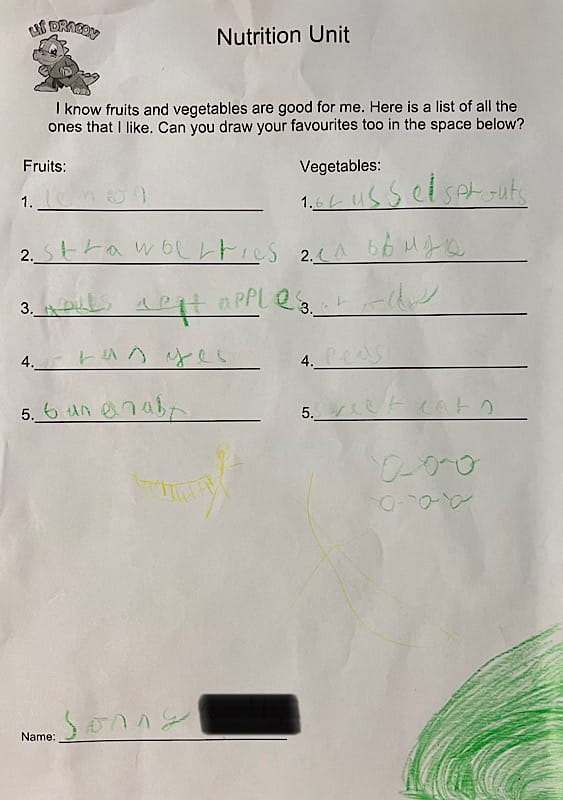 Lil' DRAGON
Nutrition Unit
I know fruits and vegetables are good for me. Here is a list of all the
ones that I like. Can you draw your favourites too in the space below?
Fruits:
1. lemon
2. strawberries
3. apples
4. ranges
5.
Vegetables:
1. brussel sprouts
2.
3.
4. peas
5.
Name: Sonny